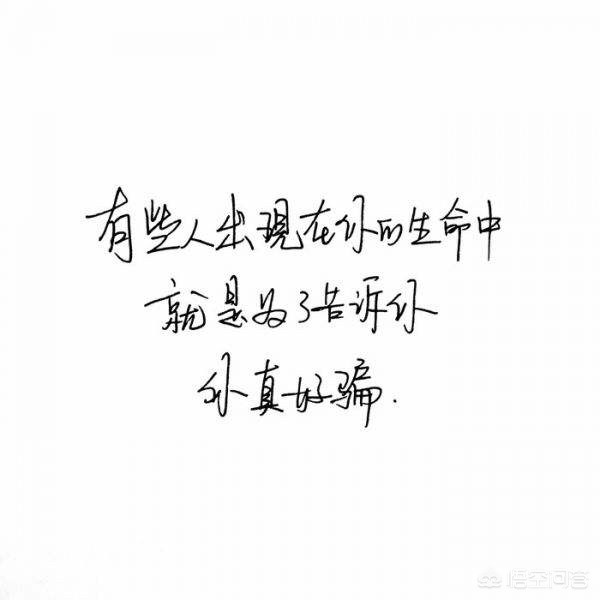 有些人出現在你的生命中
就是为了告诉你
你真好骗.
悟空问答